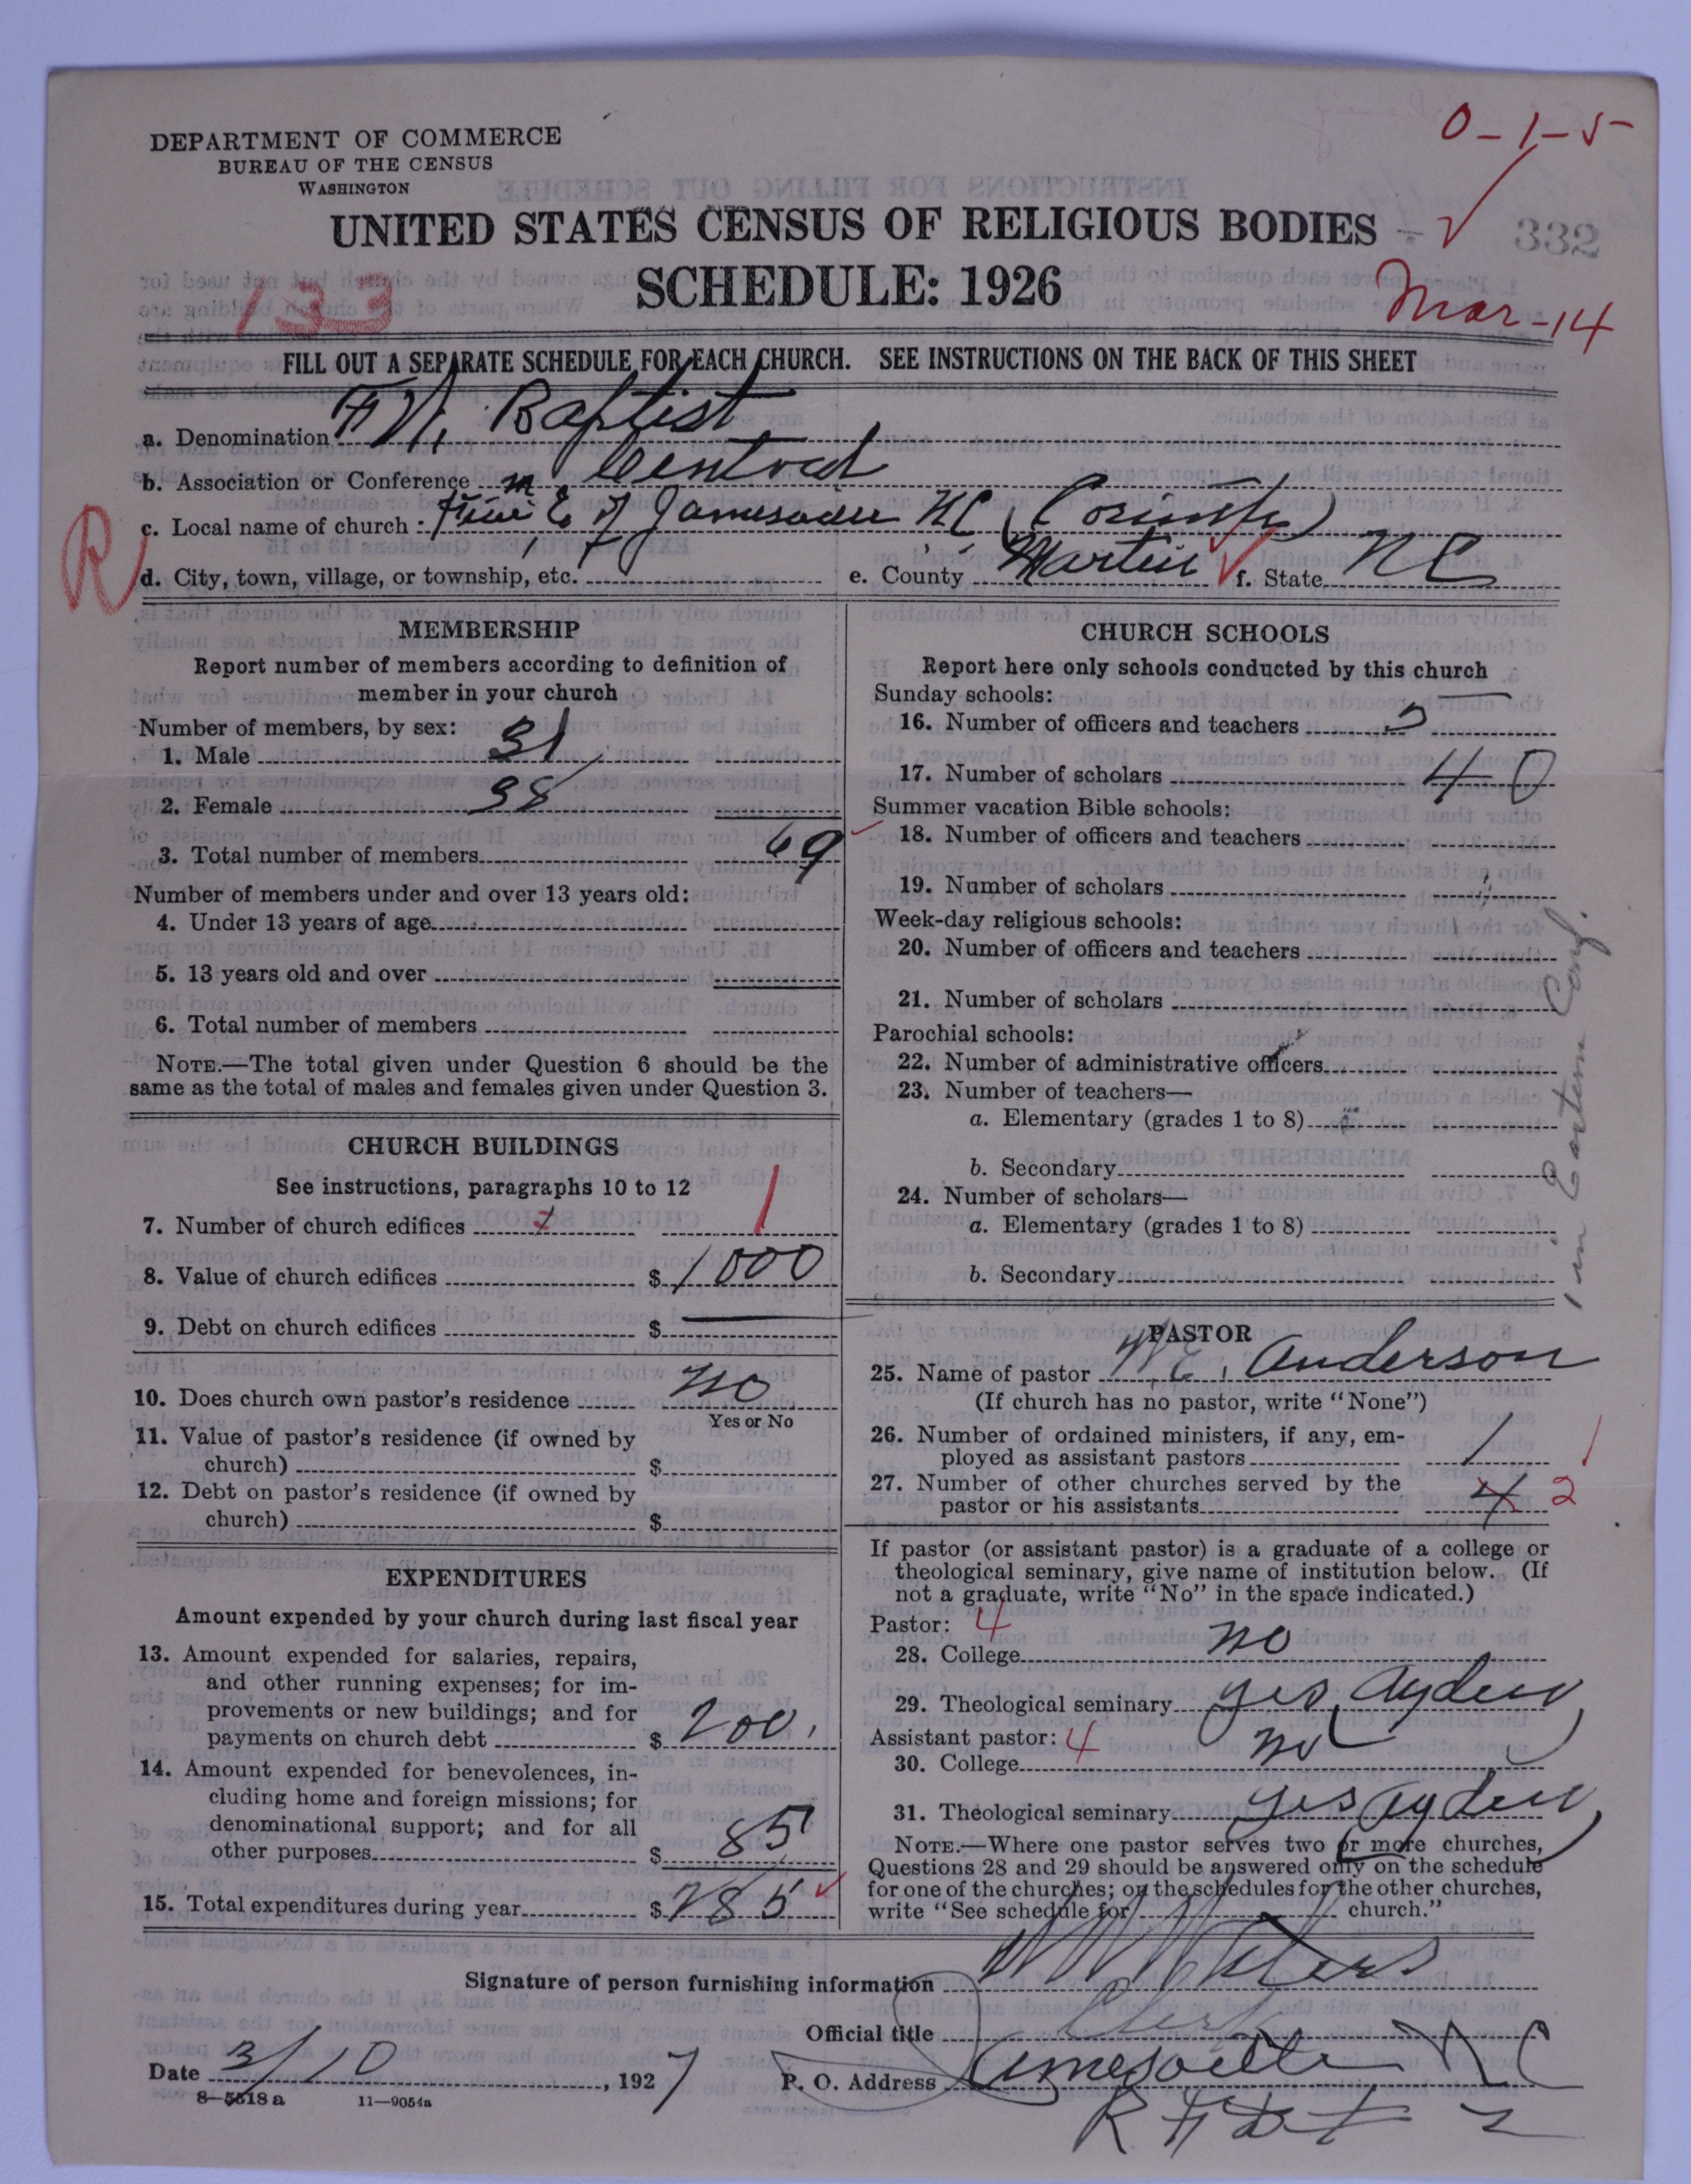 0-1-5
DEPARTMENT OF COMMERCE
BUREAU OF THE CENSUS
WASHINGTON
UNITED STATES CENSUS OF RELIGIOUS BODIES
332
SCHEDULE: 1926
133
Mar-14
FILL OUT A SEPARATE SCHEDULE FOR EACH CHURCH. SEE INSTRUCTIONS ON THE BACK OF THIS SHEET
a. Denomination F.W. Baptist
b. Association or Conference Central
c. Local name of church: E. of Jamesville NC (Corinth)
R
d. City, town, village, or township, etc. e. County Martin f. State NC
MEMBERSHIP
Report number of members according to definition of
member in your church
Number of members, by sex:
1. Male 31
2. Female 38
3. Total number of members 69
Number of members under and over 13 years old:
4. Under 13 years of age
5. 13 years old and over
6. Total number of members
NOTE.—The total given under Question 6 should be the
same as the total of males and females given under Question 3.
CHURCH BUILDINGS
See instructions, paragraphs 10 to 12
7. Number of church edifices 1 1
8. Value of church edifices $ 1000
9. Debt on church edifices $ —
10. Does church own pastor's residence no
Yes or No
11. Value of pastor's residence (if owned by
church) $
12. Debt on pastor's residence (if owned by
church) $
EXPENDITURES
Amount expended by your church during last fiscal year
13. Amount expended for salaries, repairs,
and other running expenses; for im-
provements or new buildings; and for
payments on church debt $ 200.
14. Amount expended for benevolences, in-
cluding home and foreign missions; for
denominational support; and for all
other purposes $ 85
15. Total expenditures during year $ 285
CHURCH SCHOOLS
Report here only schools conducted by this church
Sunday schools:
16. Number of officers and teachers 5
17. Number of scholars 40
Summer vacation Bible schools:
18. Number of officers and teachers
19. Number of scholars
Week-day religious schools:
20. Number of officers and teachers
21. Number of scholars
Parochial schools:
22. Number of administrative officers
23. Number of teachers—
a. Elementary (grades 1 to 8)
b. Secondary
24. Number of scholars—
a. Elementary (grades 1 to 8)
b. Secondary
1 in Eastern Conf.
PASTOR
25. Name of pastor W.E. Anderson
(If church has no pastor, write "None")
26. Number of ordained ministers, if any, em-
ployed as assistant pastors 1 1
27. Number of other churches served by the
pastor or his assistants 4 2
If pastor (or assistant pastor) is a graduate of a college or
theological seminary, give name of institution below. (If
not a graduate, write "No" in the space indicated.)
Pastor: 4
28. College no
29. Theological seminary yes (Ayden)
Assistant pastor: 4
30. College no
31. Theological seminary yes (Ayden)
NOTE.—Where one pastor serves two or more churches,
Questions 28 and 29 should be answered only on the schedule
for one of the churches; on the schedules for the other churches,
write "See schedule for church."
Signature of person furnishing information Waters
Official title Clerk
Date 3/10, 1927 P. O. Address Jamesville NC
8-5518 a 11-9054a
2